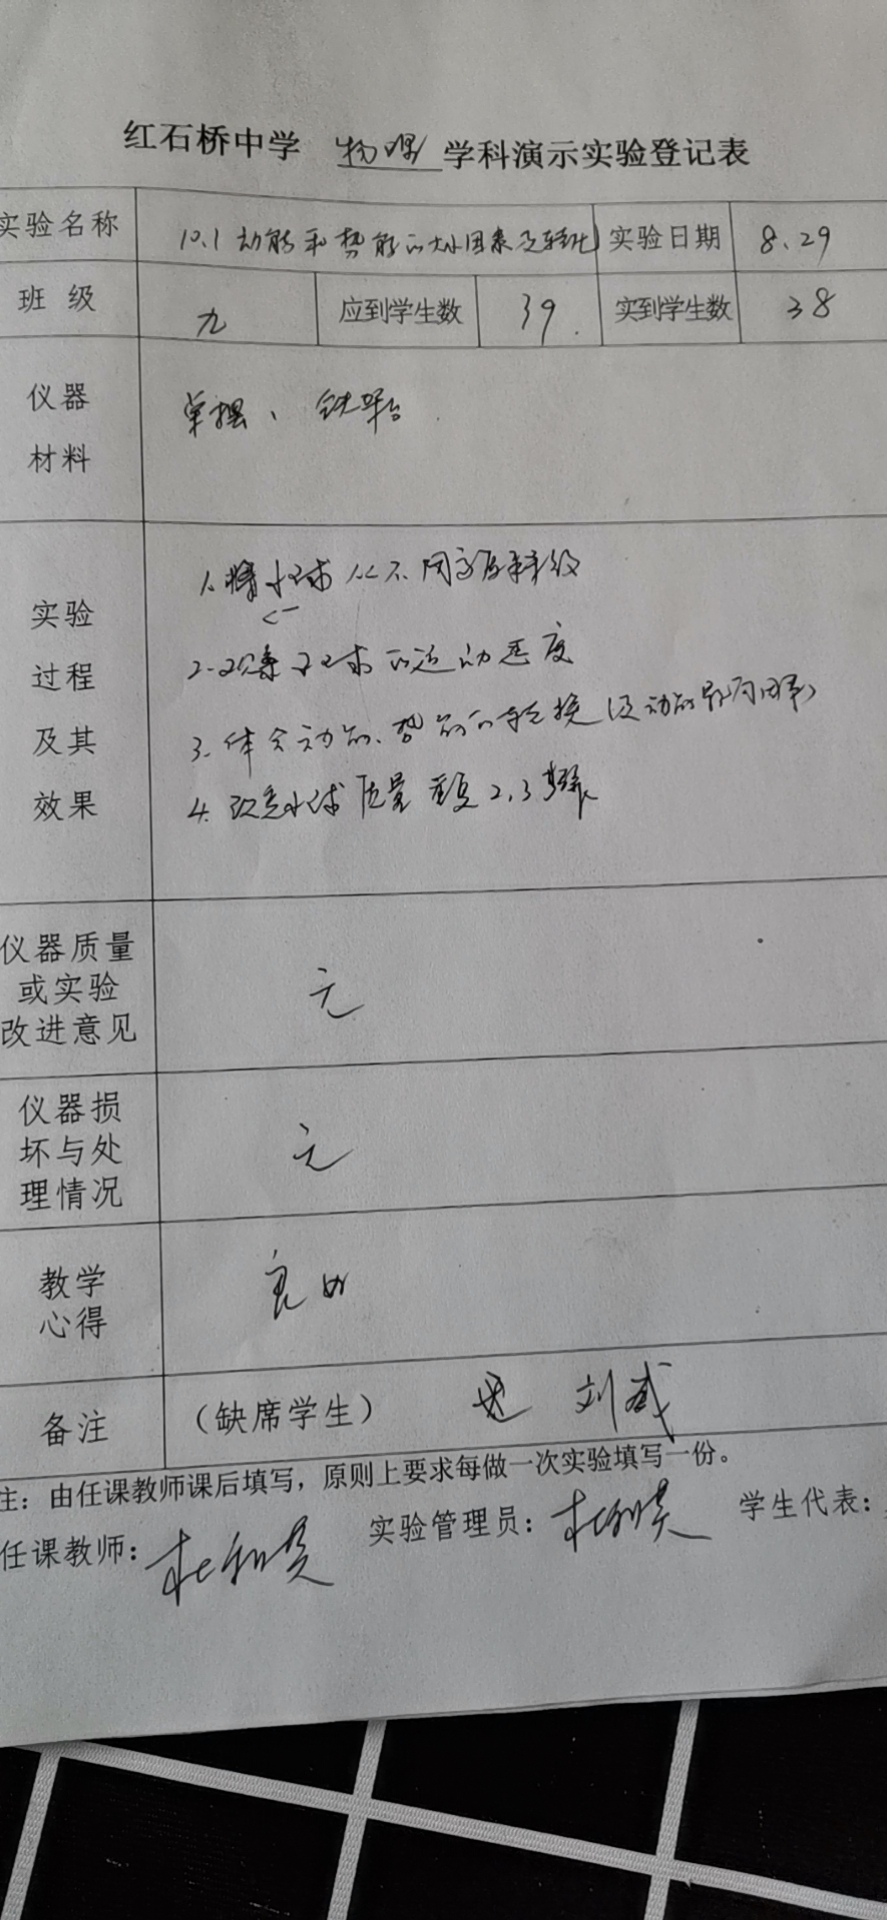 红石桥中学 物理 学科演示实验登记表
实验名称 10.1 动能和势能的大小因素及转化 实验日期 8.29
班级 九 应到学生数 39 实到学生数 38
仪器 单摆、铁架台
材料
1. 将小球从不同高度释放
实验
2. 观察小球的运动速度
过程
3. 体会动能、势能的转换
及其
4. 改变小球质量重复2.3步骤
效果
仪器质量
或实验 无
改进意见
仪器损
坏与处 无
理情况
教学 良好
心得
备注 (缺席学生) 刘威
注：由任课教师课后填写，原则上要求每做一次实验填写一份。
任课教师： 实验管理员： 学生代表：